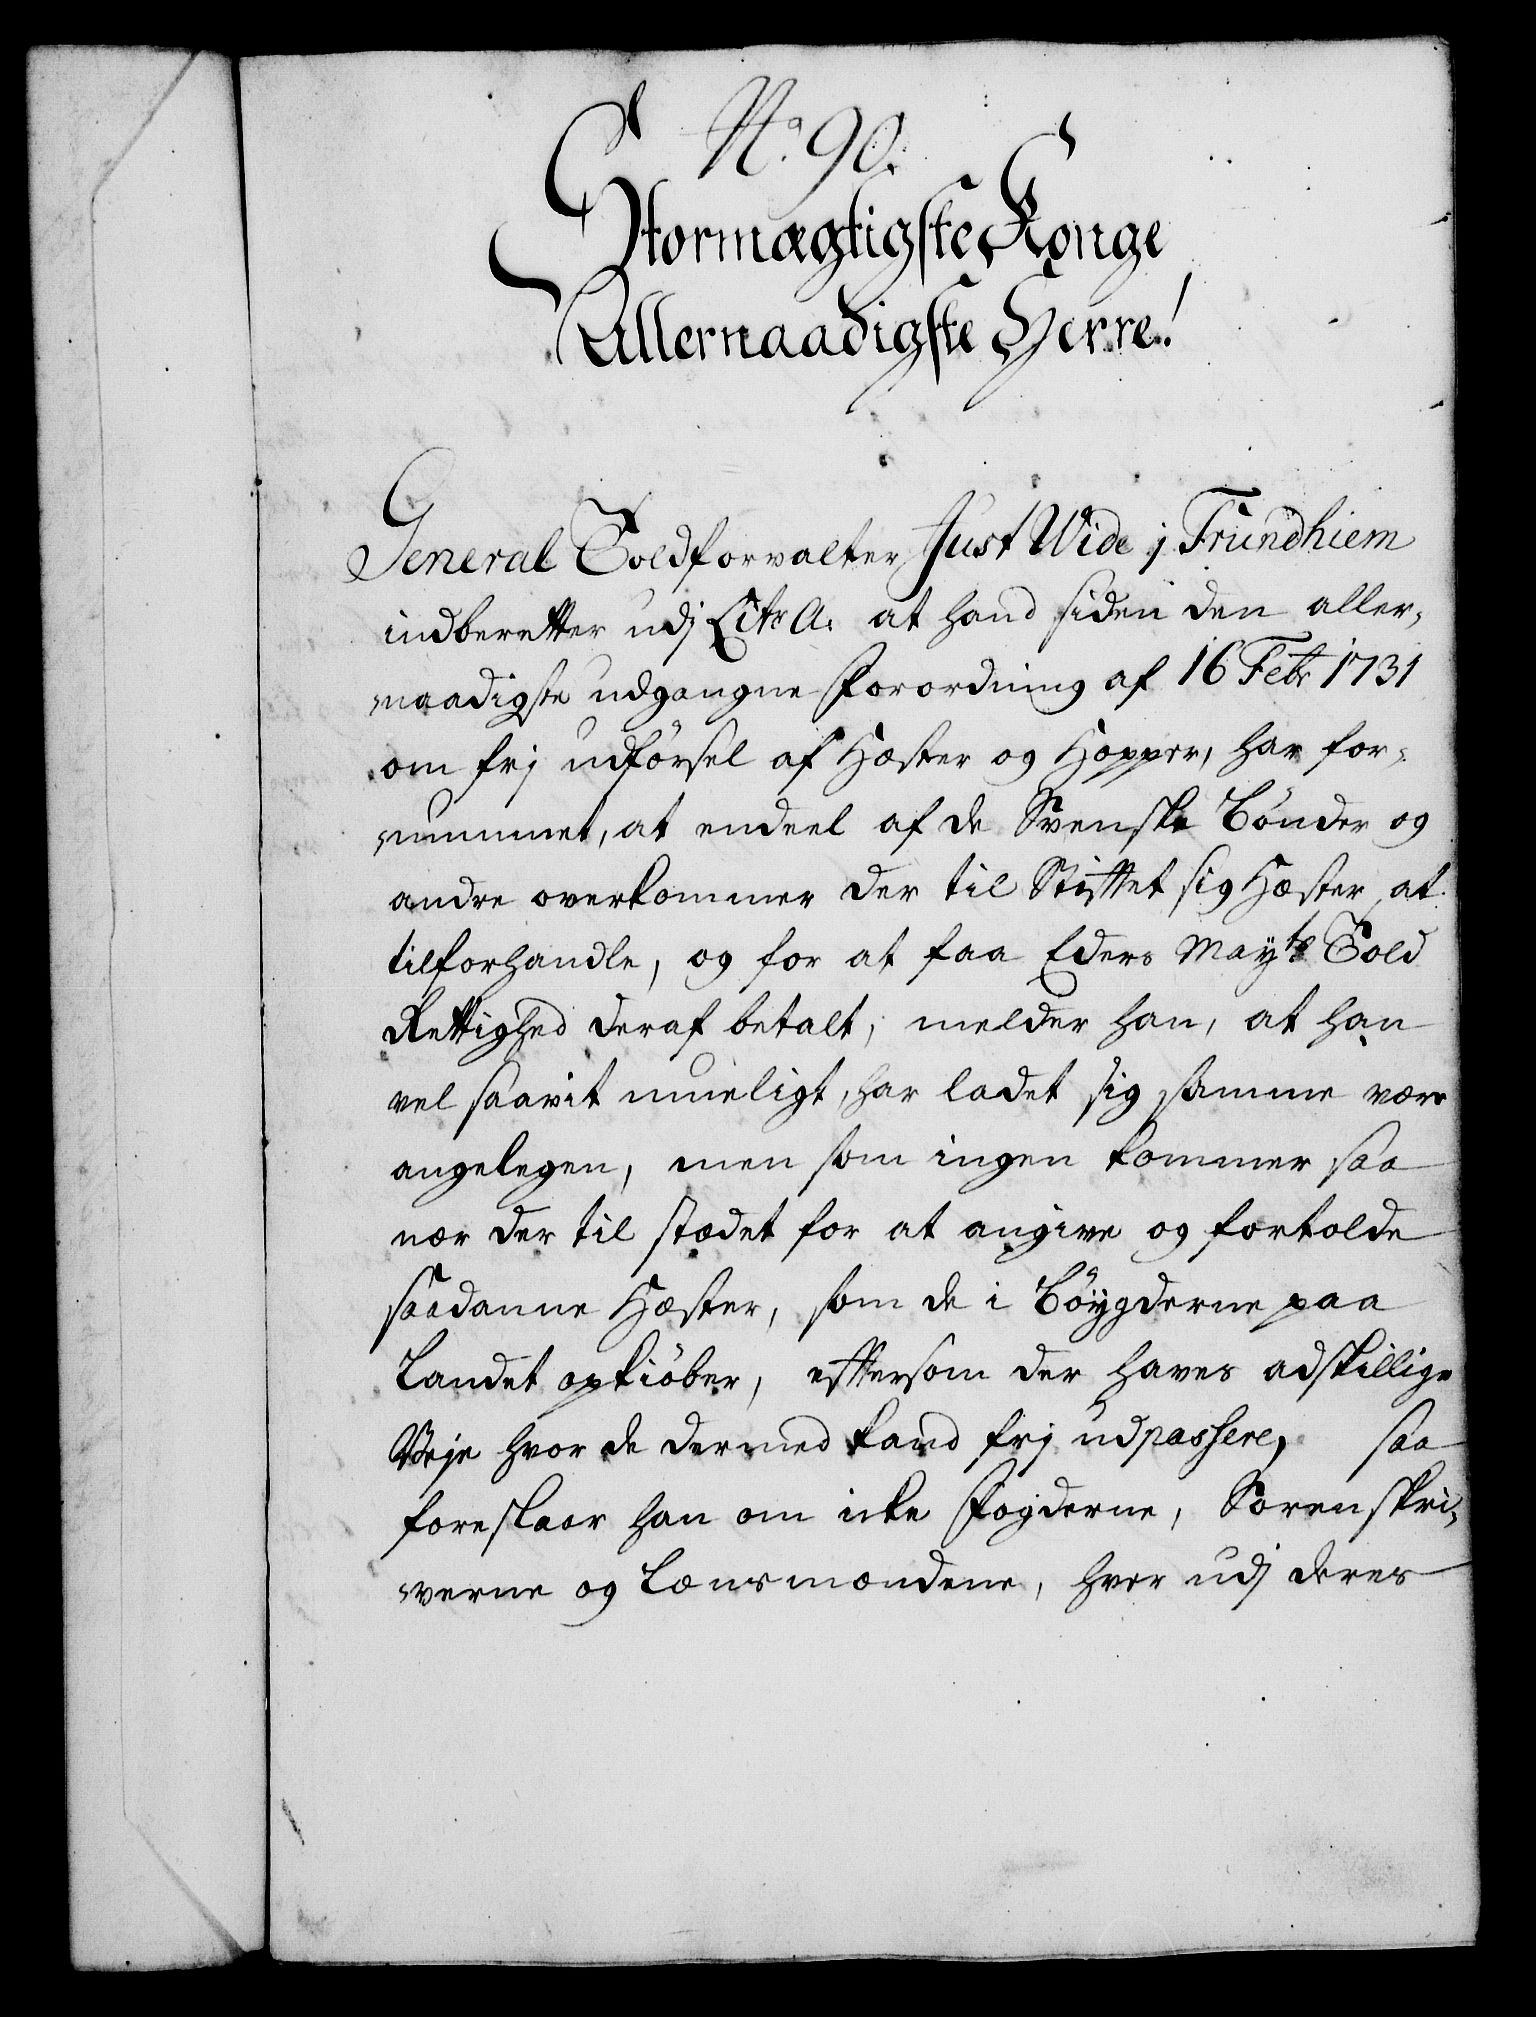 No. 90.
Stormægtigste Konge
Allernaadigste Herre!
General Toldforvalter Just Wide j Trundhiem
indberetter udj Litr A. at hand siden den aller,
naadigste udgangne Forordning af 16 Febr 1731
om frj udförsel af Hæster og Hopper, har for,
nummet, at endeel af de Svenske Bönder og
andre overkommer der til Stiftet sig Hæster at
tilforhandle, og for at faa Eders Mayts Told
Rettighed deraf betalt, melder han, at han
vel saavit mueligt, har ladet sig samme være
angelegen, men som ingen kommer saa
nær der til stædet for at angive og fortolde
saadanne Hæster, som de i Böygderne paa
Landet opkiöber, eftersom der haves adskillige
Veje hvor de dermed kand frj udpassere, saa
foreslaar han om icke Fogderne, Sorenskri,
verne og Lænsmændene, hver udj deres